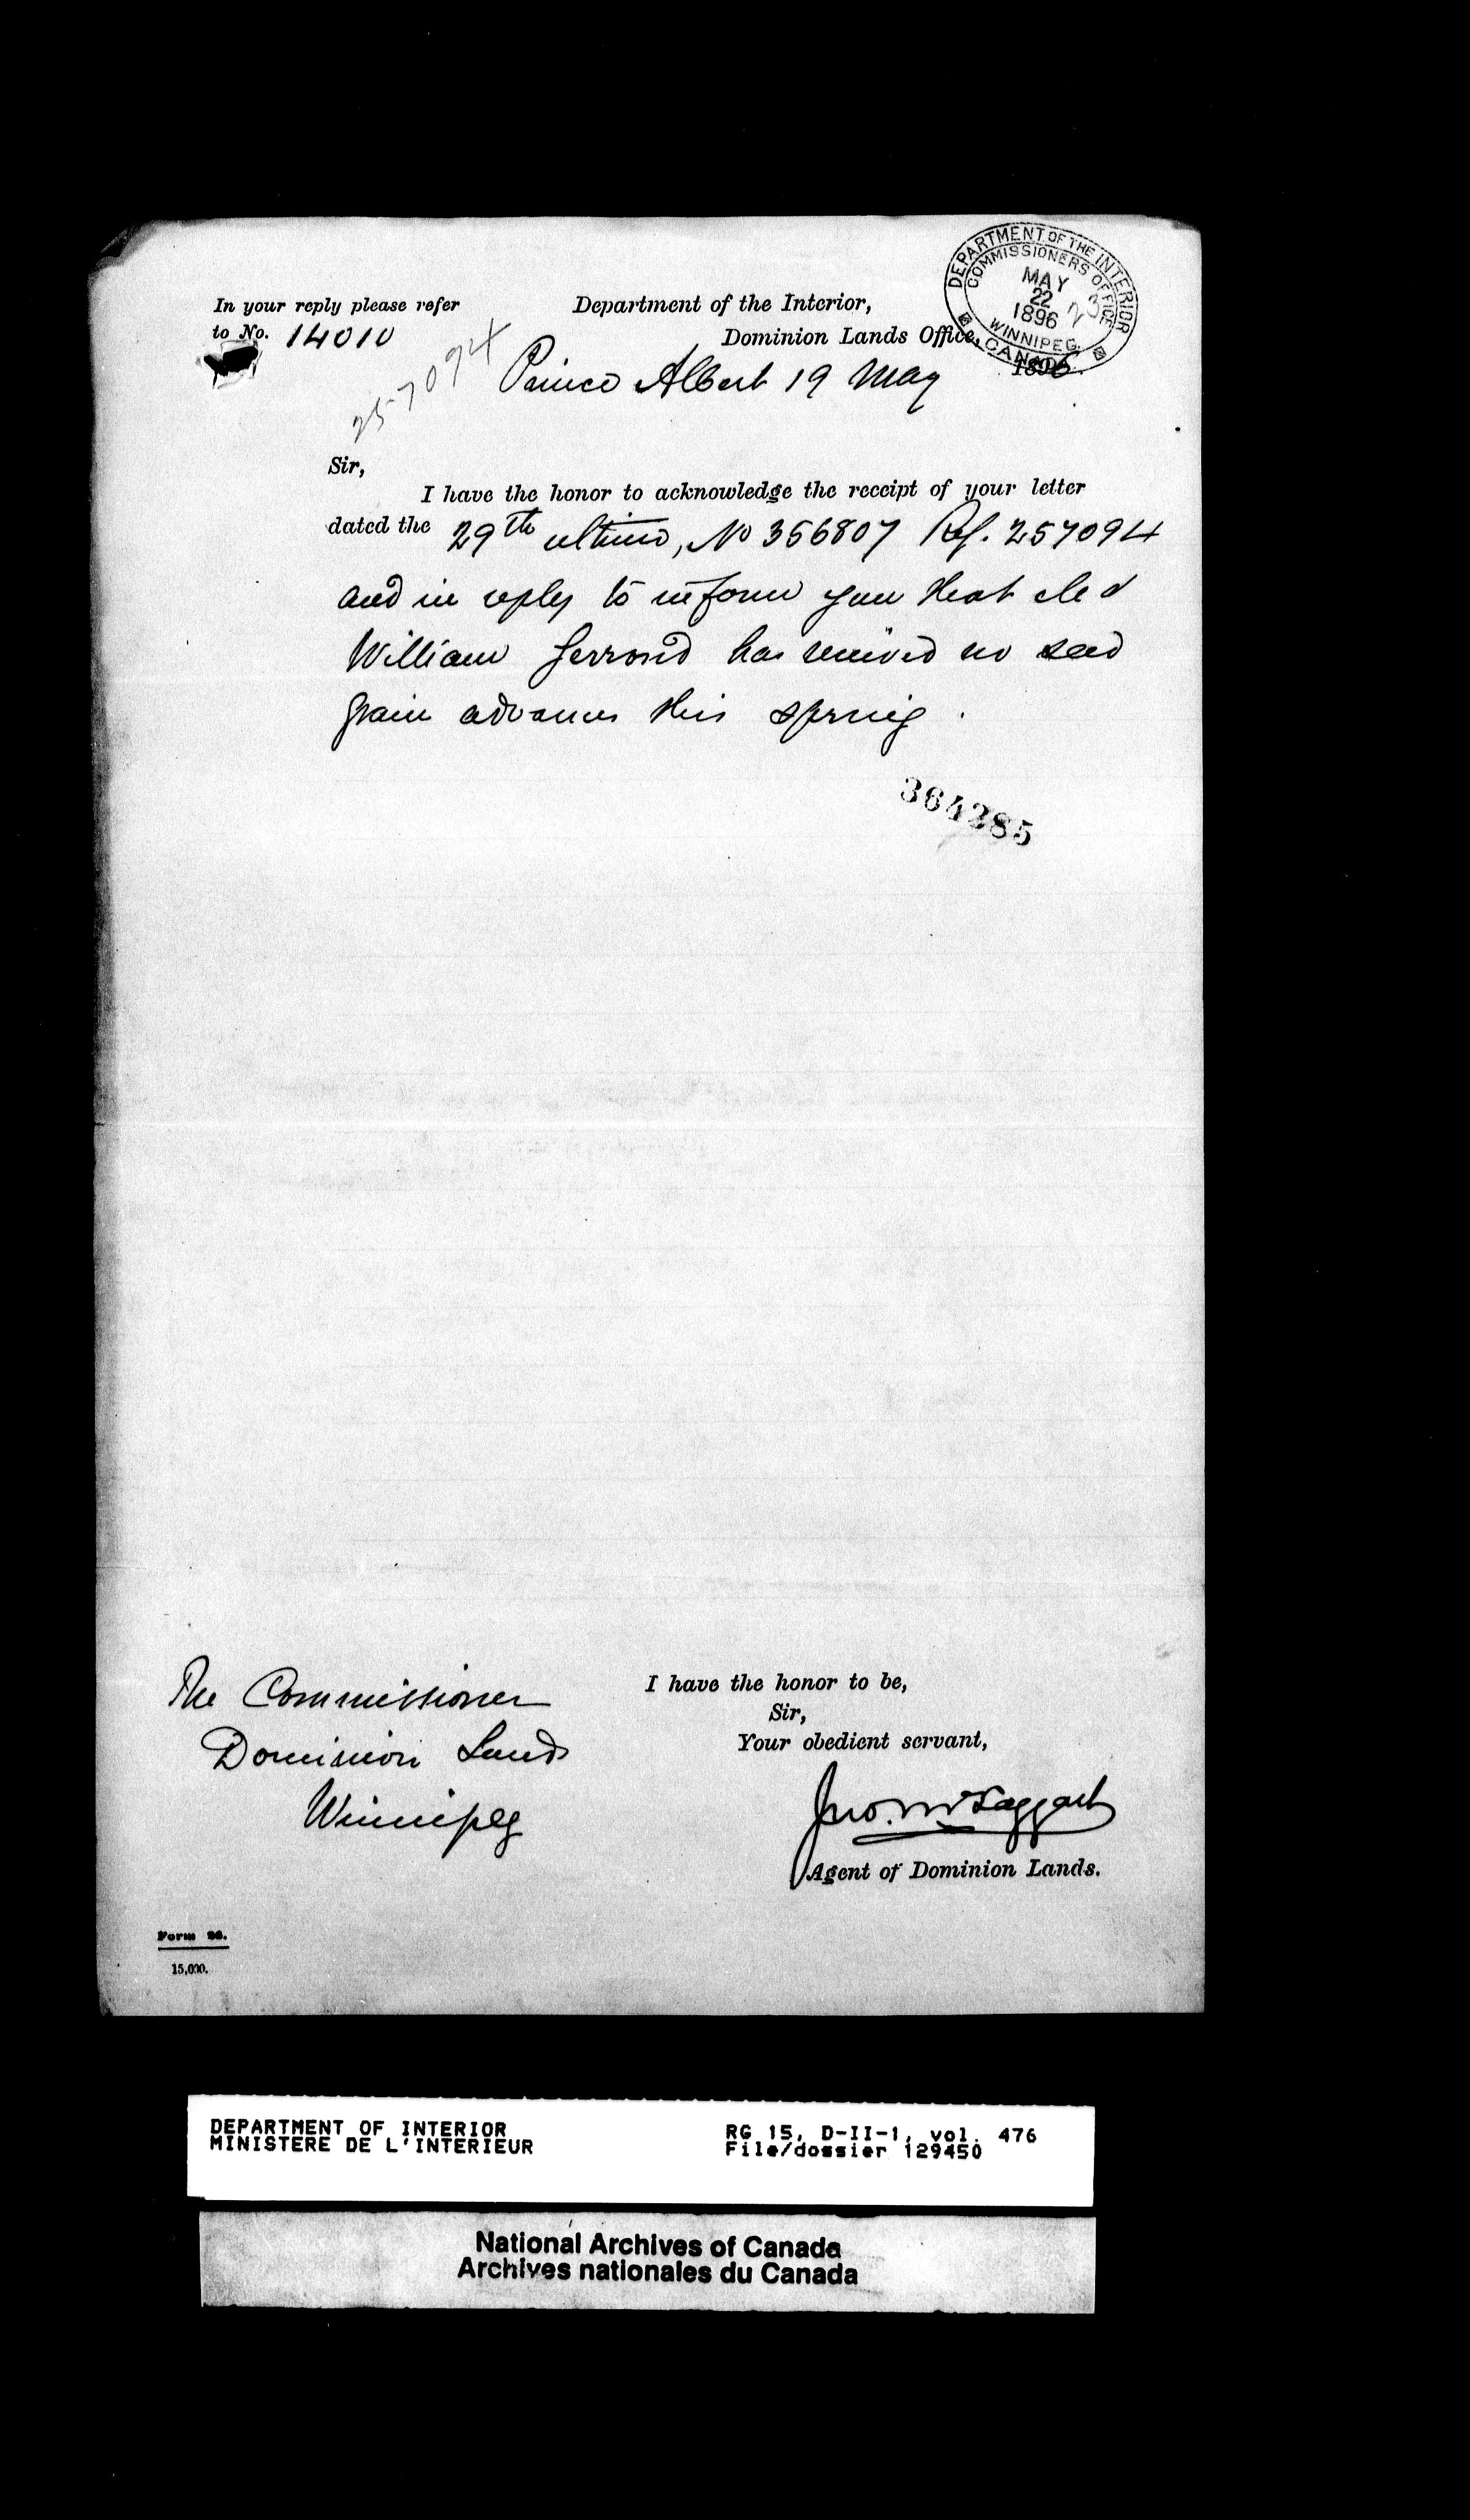 DEPARTMENT OF THE INTERIOR
COMMISSIONERS OFFICE
MAY
22
1896
23
WINNIPEG.
CANADA
In your reply please refer
to No. 14010
Department of the Interior,
Dominion Lands Office,
257094
Prince Albert 19 May 1896.
Sir,
I have the honor to acknowledge the receipt of your letter
dated the 29th ultimo, No 356807 Ref. 257094
and in reply to inform you that
William has received no seed
grain advances this spring.
364285
The Commissioner
Dominion Lands
Winnipeg
I have the honor to be,
Sir,
Your obedient servant,
Jno. McTaggart
Agent of Dominion Lands.
Form 26.
15,000.
DEPARTMENT OF INTERIOR
MINISTERE DE L'INTERIEUR
RG 15, D-II-1, vol. 476
File/dossier 129450
National Archives of Canada
Archives nationales du Canada